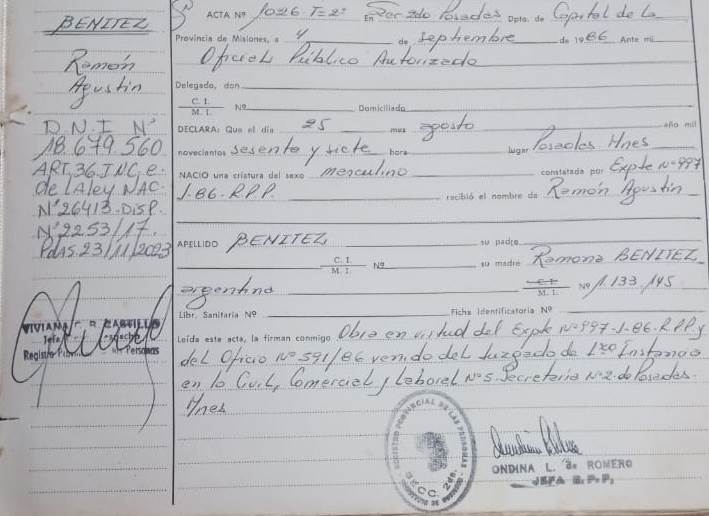 BENITEZ
Ramón
Agustin
D.N.I Nº
18.679.560
ART, 36. INC, e.
de LA ley NAC.
Nº 26413-DISP.
Nº 2253/17.
Pdas. 23/11/2023
VIVIANA R. CASTILLO
Jefe
Registro Personas
ACTA Nº 1026-T=2º En Posadas Dpto. de Capital de la
Provincia de Misiones, a 4 de septiembre de 1986 Ante mí
Oficial Público Autorizado
Delegado, don
C. I. M. I. Nº Domiciliado
DECLARA: Que el día 25 mes agosto año mil
novecientos sesenta y siete hora lugar Posadas Mnes
NACIO una criatura del sexo masculino constatada por Expte Nº 997
J-86-R.P.P. recibió el nombre de Ramón Agustin
APELLIDO BENITEZ su padre
C. I. M. I. Nº su madre Ramona BENITEZ
argentina C. I. M. I. Nº 1.133.145
Libr. Sanitaria Nº Ficha Identificatoria Nº
Leída este acta, la firman conmigo Obra en virtud del Expte Nº 997-J-86-R.P.P y
del Oficio Nº 591/86 venido del Juzgado de 1ra Instancia
en lo Civil, Comercial y Laboral Nº 5. Secretaria Nº 2. de Posadas
Mnes
REGISTRO PROVINCIAL DE LAS PERSONAS
SECC. 2da.
ONDINA L. de ROMERO
JEFA R.P.P.